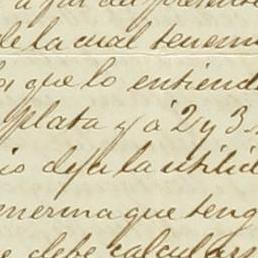 de la cual tenem
que lo entiend
plata y á 2 y 3
io deja la utilid
merma que teng
e debe calcular